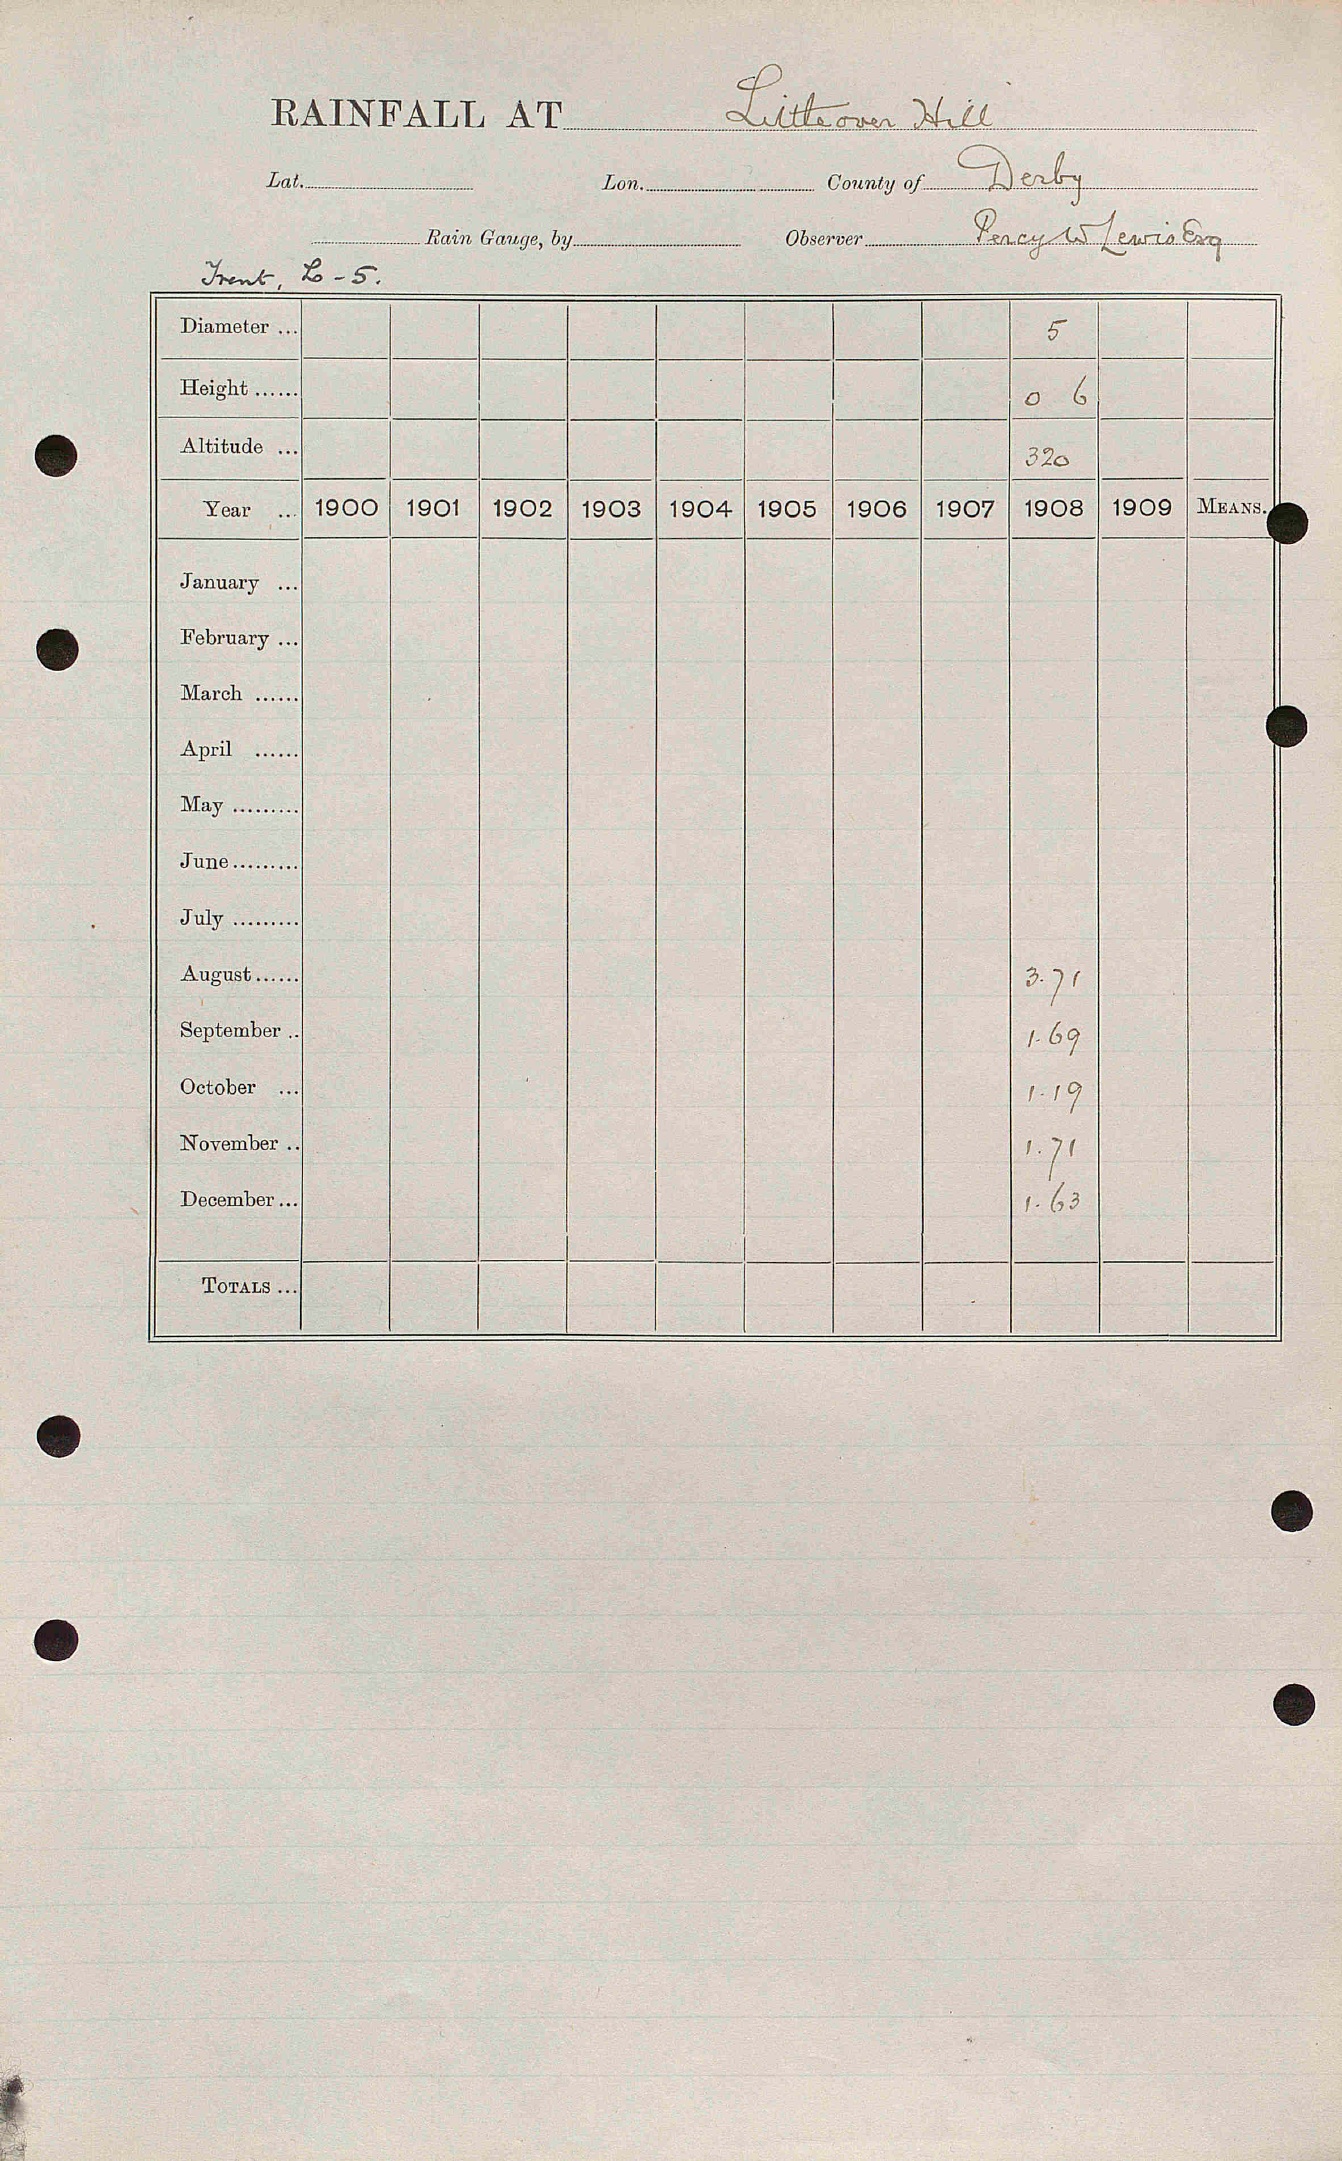 RAINFALL AT Littleover Hill
Lat. Lon. County of Derby
Rain Gauge, by Observer Percy W Lewis Esq
Trent, L - 5.
Diameter ... 5
Height ...... 0 6
Altitude ... 320
Year ... 1900 1901 1902 1903 1904 1905 1906 1907 1908 1909 MEANS.
January ...
February ...
March ......
April ......
May .........
June .........
July .........
August ...... 3.71
September .. 1.69
October ... 1.19
November .. 1.71
December ... 1.63
TOTALS ...